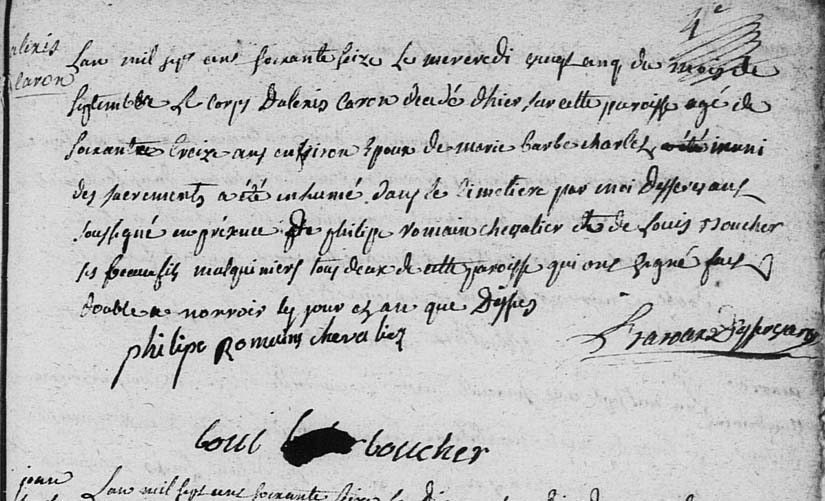 4e
alexis
Caron
Lan mil sept cens soixante seize le mercredi vingt cinq du mois de
septembre le corps dalexis caron decedé d'hier sur cette paroisse agé de
soixante treize ans environ epoux de marie barbe charles muni
des sacrements a été inhumé dans le cimetiere par moi desservant
soussigné en présence de philipe romain chevalier et de Louis Boucher
ses beaux fils mulquiniers tous deux de cette paroisse qui ont signé fait
double a norroir les jour et an que dessus
philipe Romain chevaliez
desservant
Loui boucher
Lan mil sept cens soixante seize le